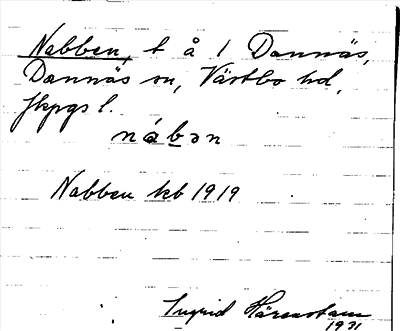 Nabben, t å 1 Dannäs,
Dannäs sn, Västbo hd,
Jkpgs l.
nábən
Nabben kb 1919
Ingrid Härenstam
1931